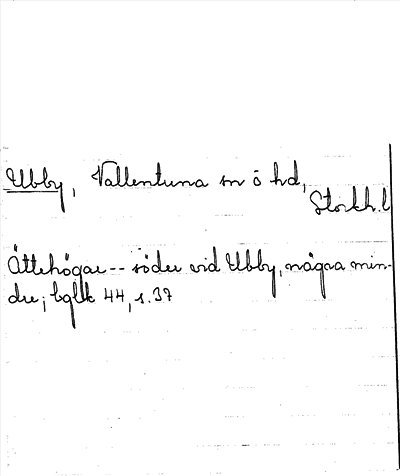 Ubby, Vallentuna sn ö hd,
Stockh. l
Ättehögar -- söder vid Ubby, några min-
dre; bglk 44, s. 37